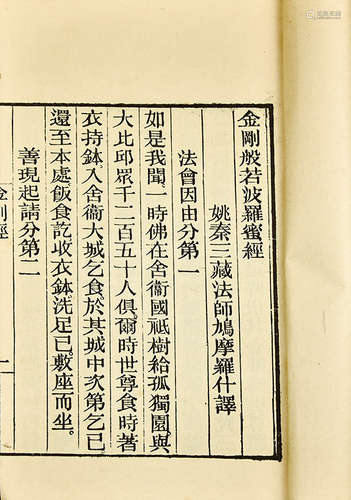 金剛般若波羅蜜經
姚秦三藏法師鳩摩羅什譯
法會因由分第一
如是我聞、一時佛在舍衞國祇樹給孤獨園與
大比邱眾千二百五十人俱。爾時世尊食時著
衣持鉢、入舍衞大城乞食於其城中次第乞已
還至本處飯食訖收衣鉢洗足已。敷座而坐。
善現起請分第二
金剛經
一